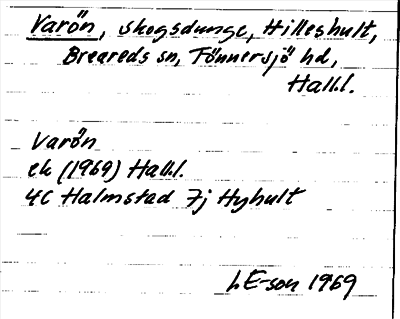 Varön, skogsdunge, Hilleshult,
Breareds sn, Tönnersjö hd,
Hall.
Varön
ek (1969) Hall.
4C Halmstad 7j Hyhult
LE-son 1969